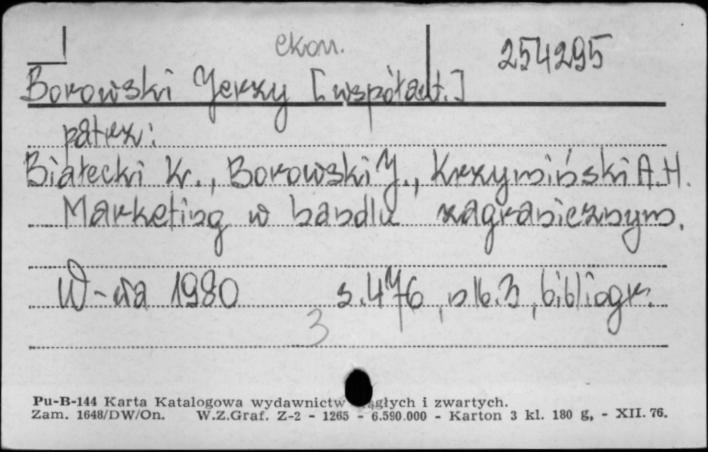 ekon.
254295
Borowski Jerzy [współaut.]
patrz:
Białecki K., Borowski J., Krzymiński A.H.
Marketing w handlu zagranicznym.
W-wa 1980 s. 476, nlb. 3, bibliogr.
3
Pu-B-144 Karta Katalogowa wydawnictw ciągłych i zwartych.
Zam. 1648/DW/On. W.Z.Graf. Z-2 - 1265 - 6.590.000 - Karton 3 kl. 180 g, - XII. 76.